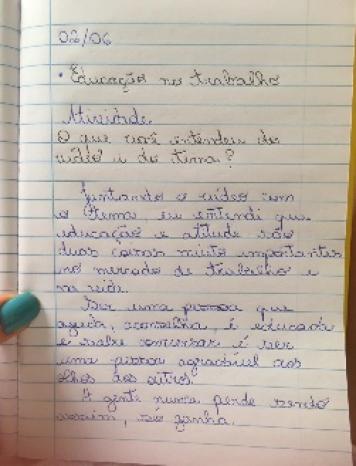 02/06
• Educação no trabalho
Atividade
O que você entendeu do
vídeo e do tema?
Juntando o vídeo com
o tema, eu entendi que
educação e atitude são
duas coisas muito importantes
no mercado de trabalho e
na vida.
Ser uma pessoa que
ajuda, aconselha, é educada
e sabe conversar é ser
uma pessoa agradável aos
olhos dos outros.
A gente nunca perde sendo
assim, só ganha.